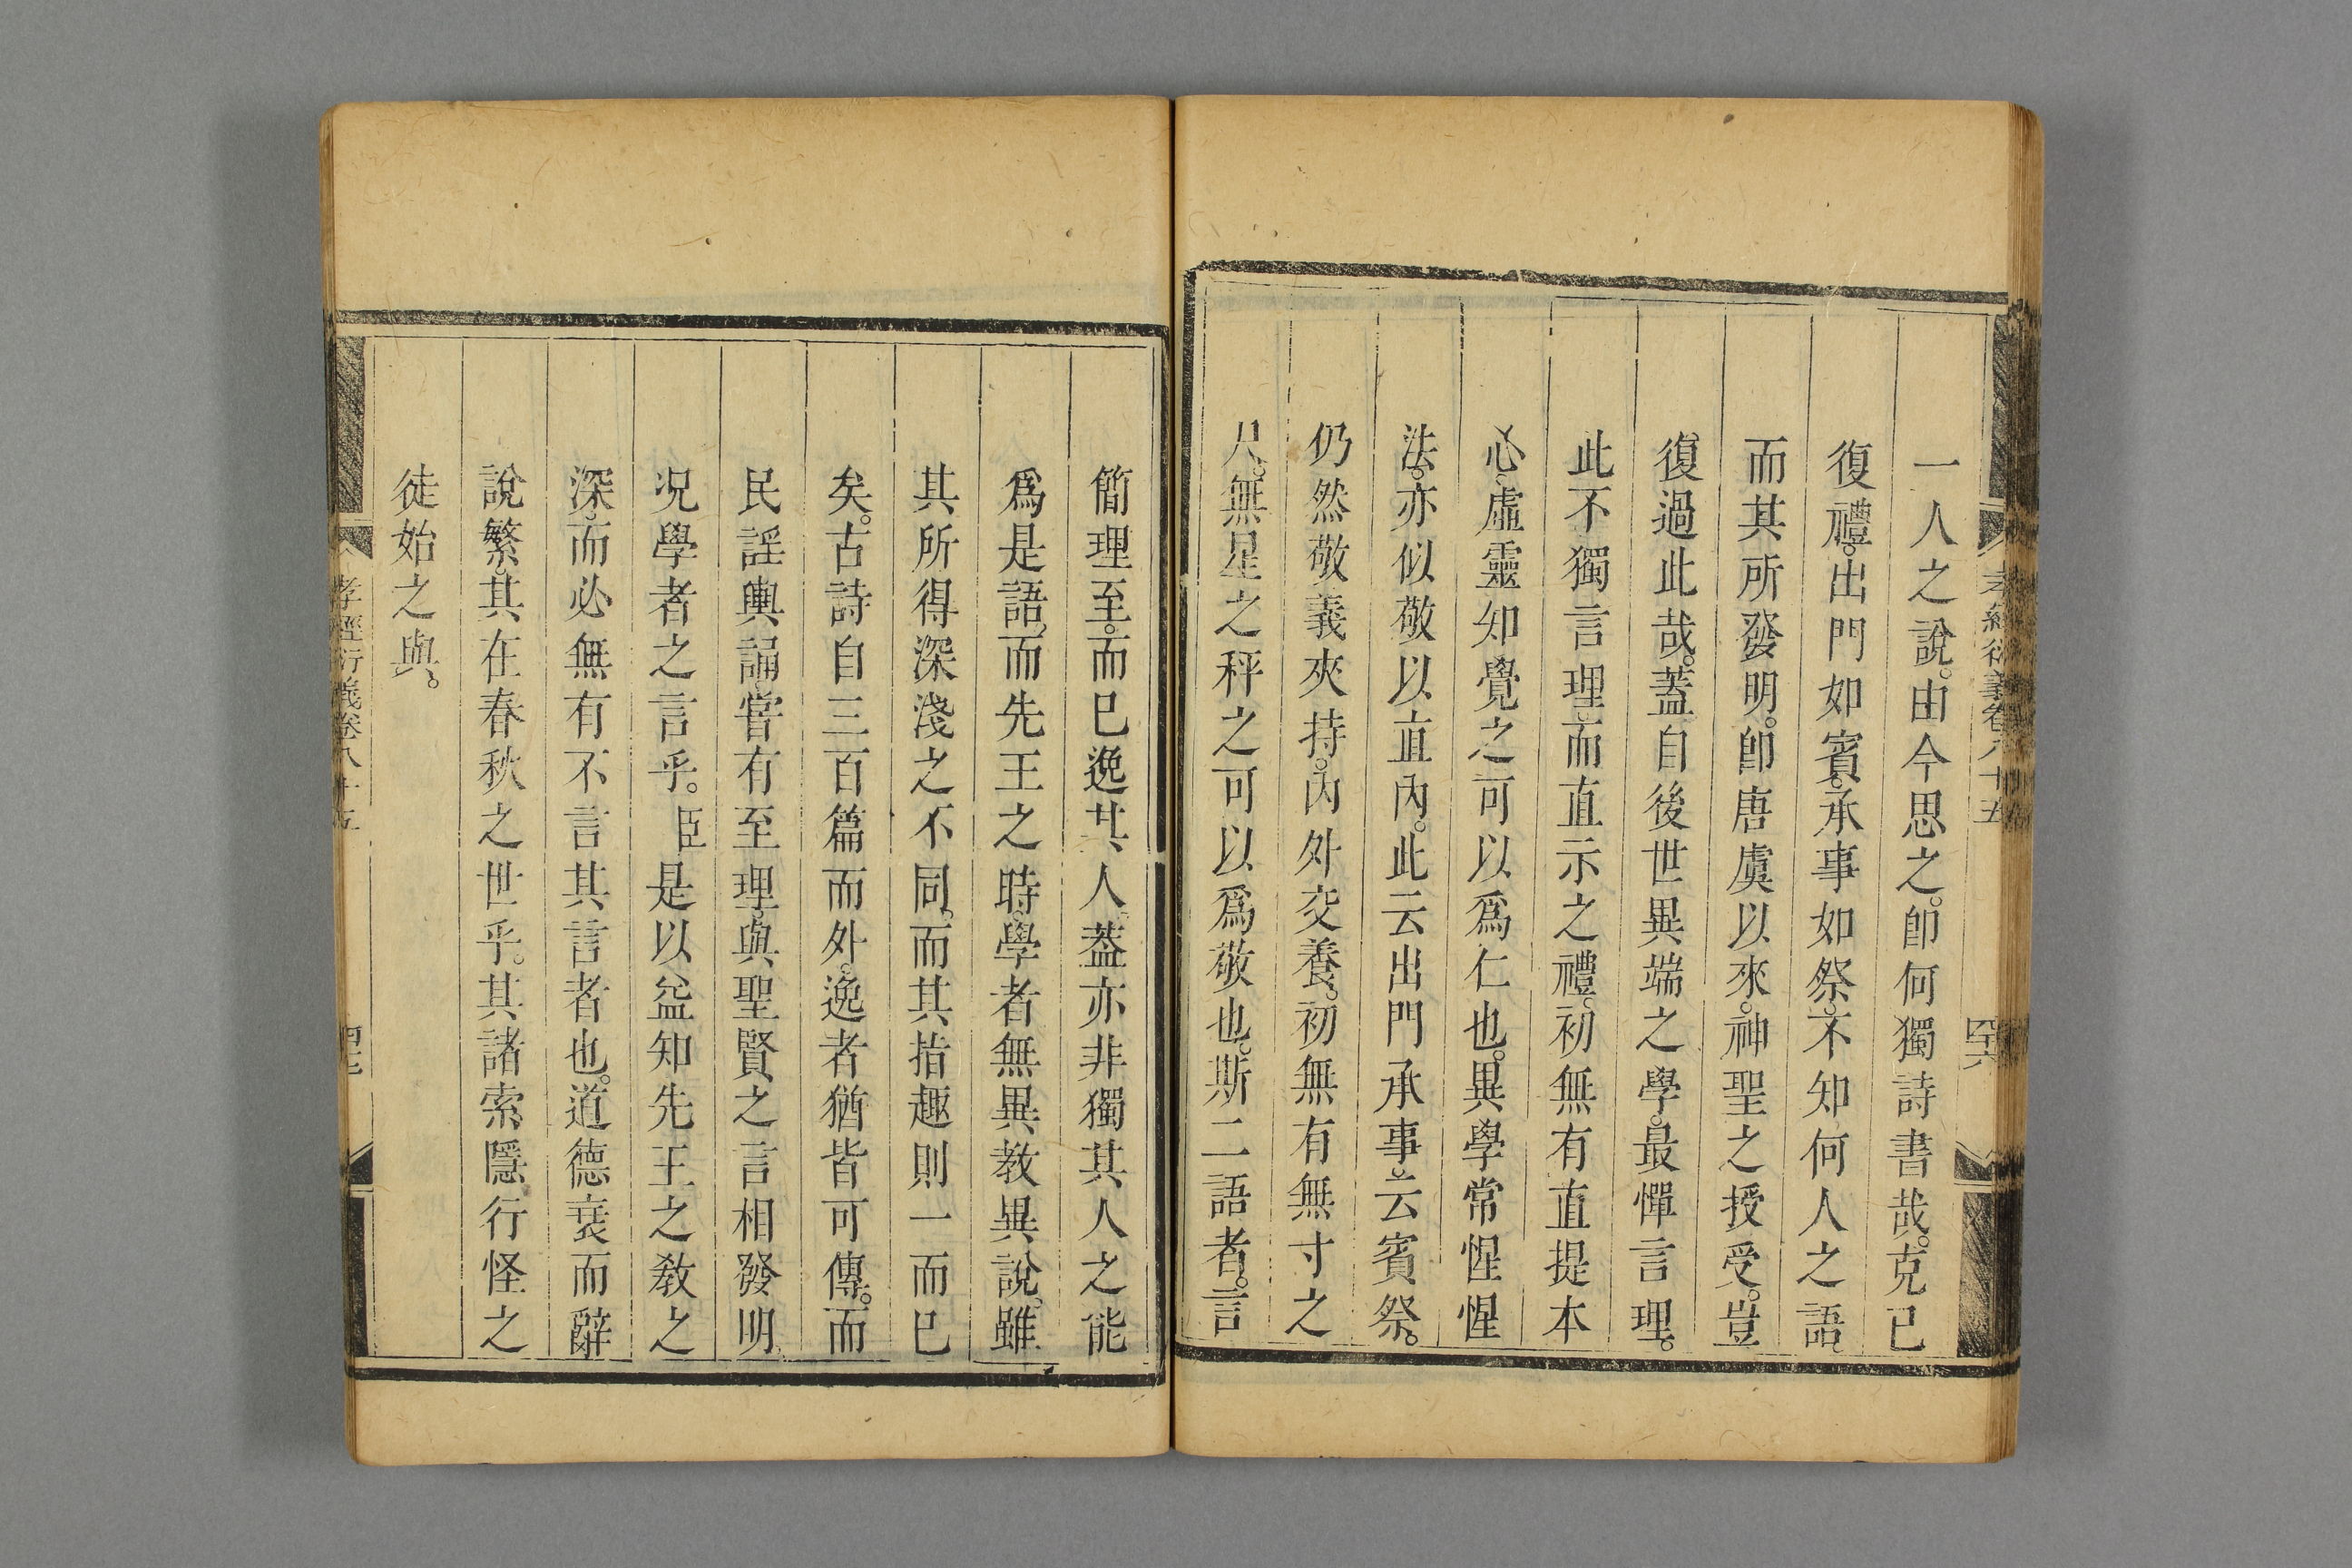 一人之說。由今思之。卽何獨詩書哉。克已
復禮。出門如賓。承事如祭。不知何人之語。
而其所發明。卽唐虞以來。神聖之授受。豈
復過此哉。蓋自後世異端之學。最憚言理。
此不獨言理。而直示之禮。初無有直提本
心。虛靈知覺之可以爲仁也。異學常惺惺
法。亦似敬以直內。此云出門承事。云賓祭。
仍然敬義夾持。內外交養。初無有無寸之
尺。無星之秤之可以爲敬也。斯二語者。言
孝經衍義卷八十五
四十六
簡理至。而已逸其人。蓋亦非獨其人之能
爲是語。而先王之時。學者無異教異說。雖
其所得深淺之不同。而其指趣則一而已
矣。古詩自三百篇而外。逸者猶皆可傳。而
民謡輿誦。嘗有至理。與聖賢之言相發明
况學者之言乎。臣是以益知先王之教之
深。而必無有不言其言者也。道德衰而辭
說繁。其在春秋之世乎。其諸索隱行怪之
徒始之與。
孝經衍義卷八十五